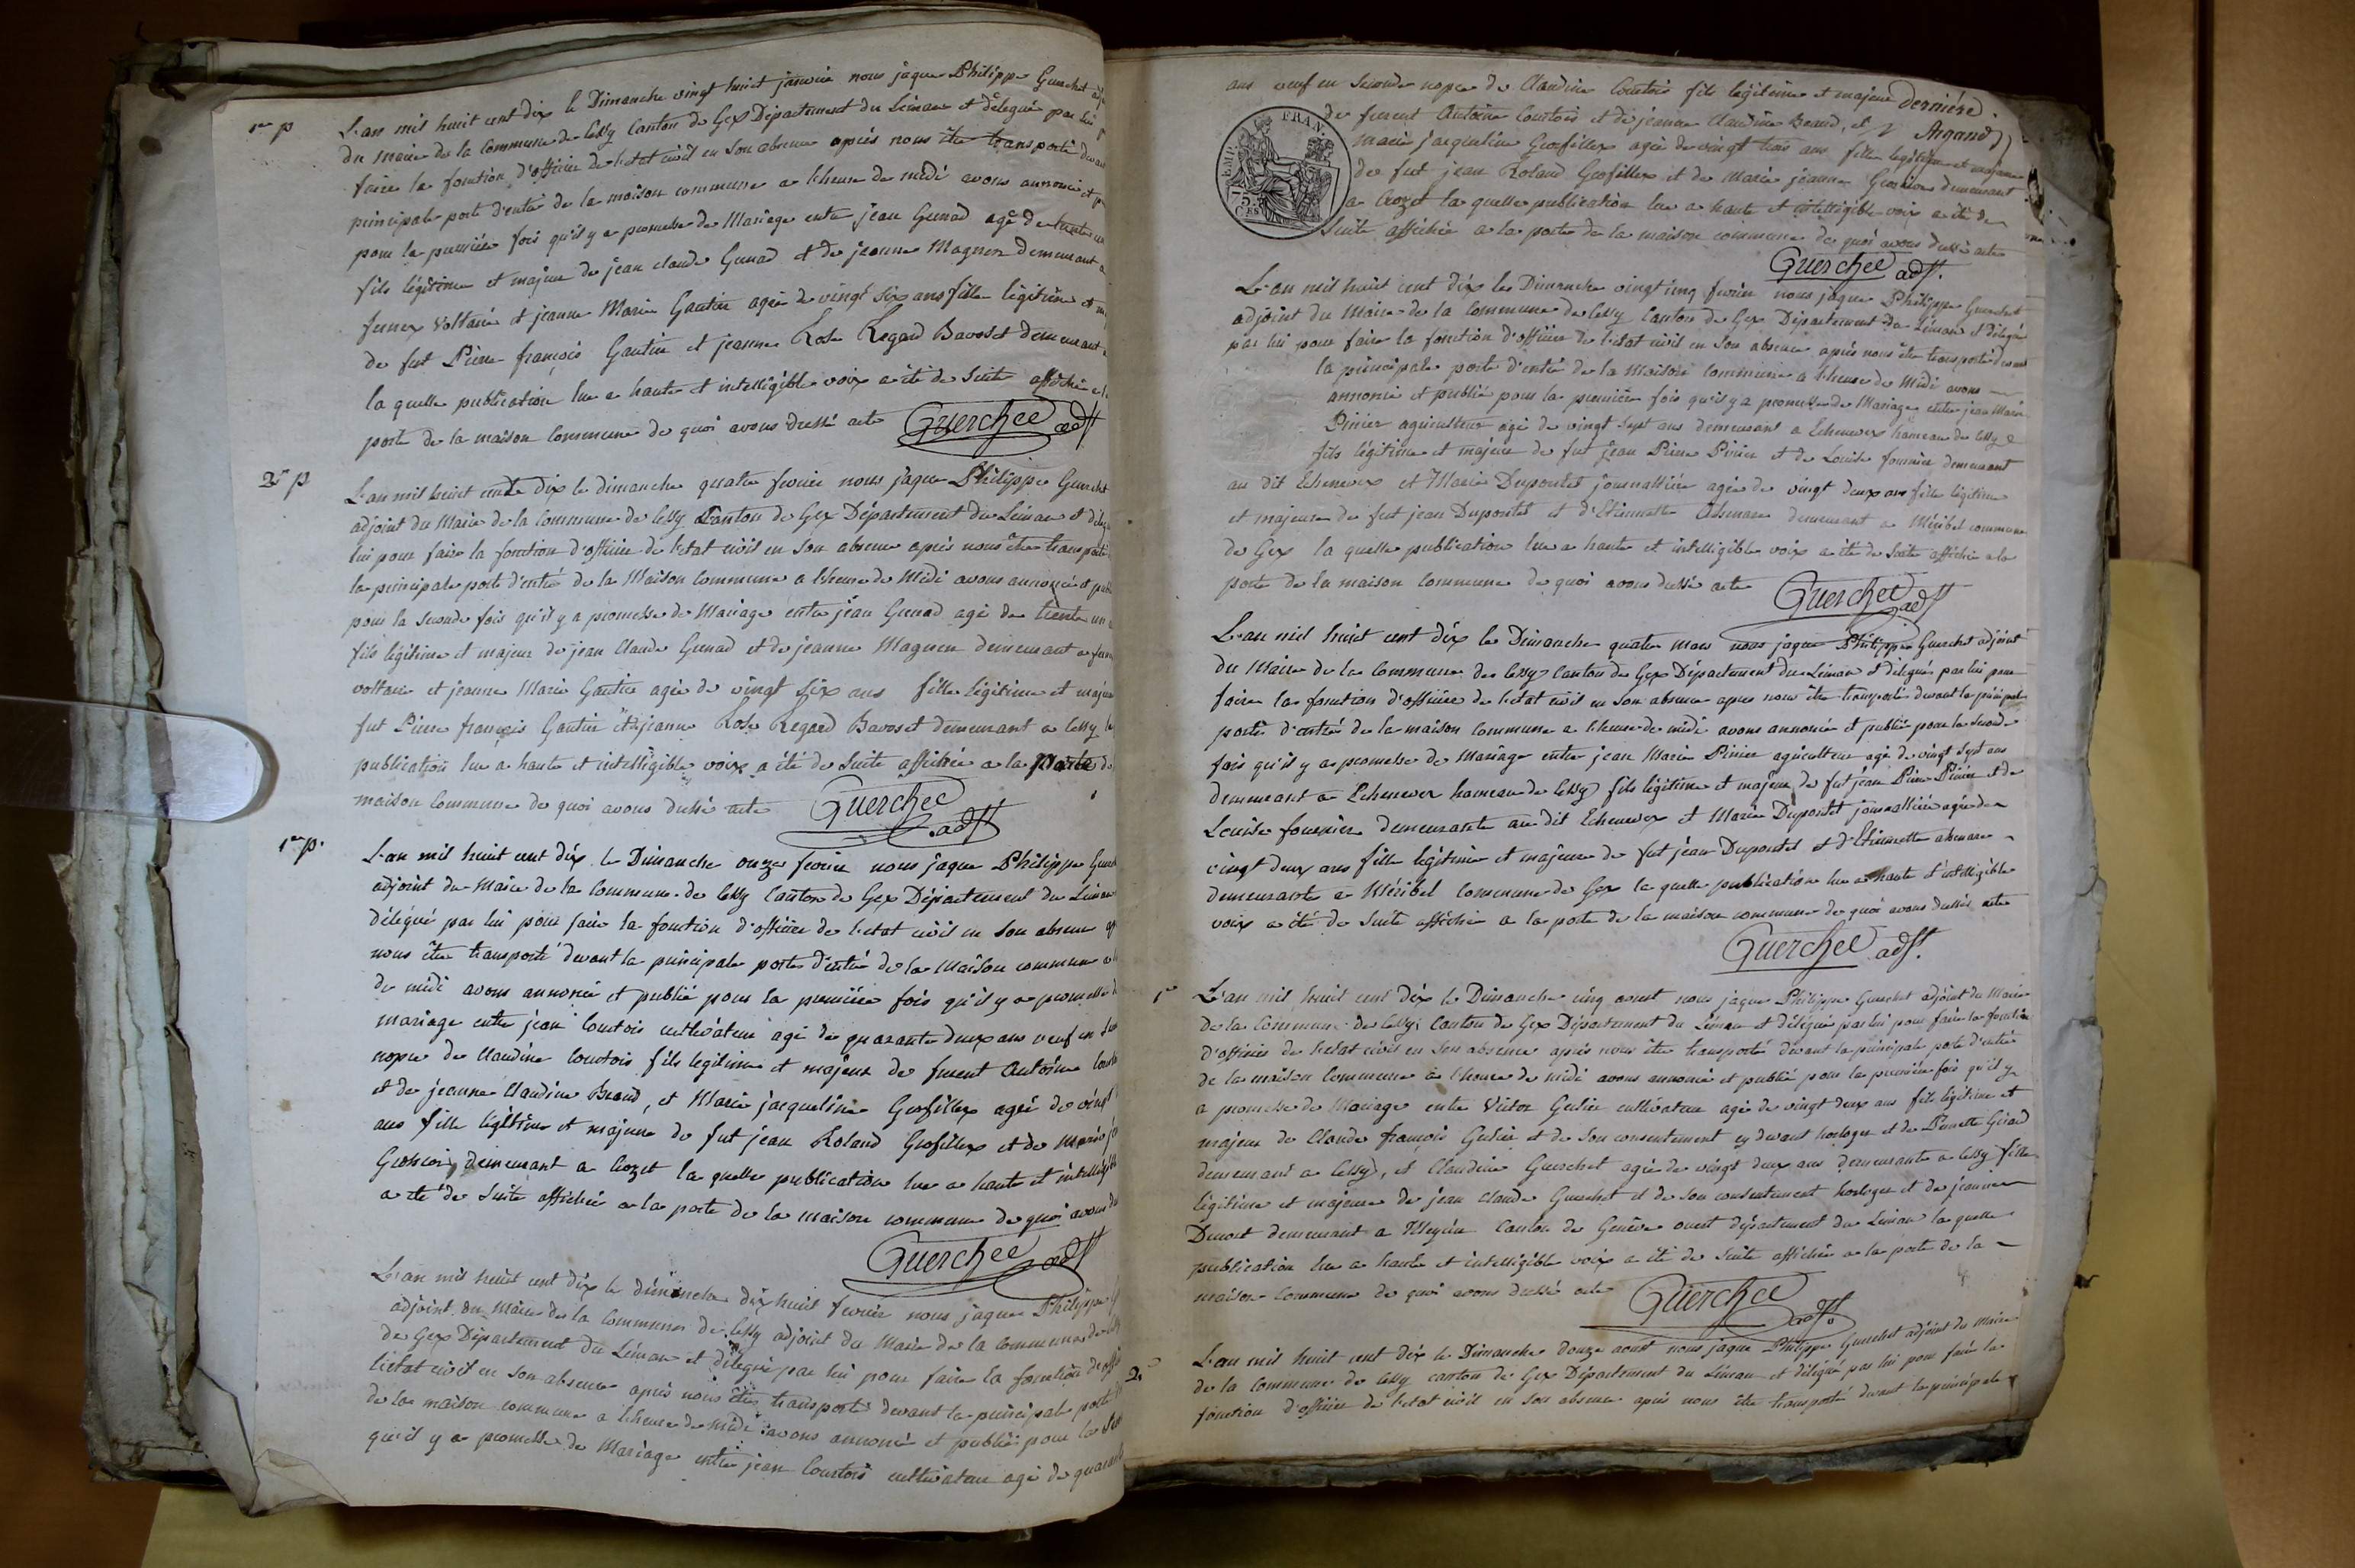 1er p
L'an mil huit cent dix le Dimanche vingt huit janvier nous jaque Philippe Guerchet adj
du maire de la Commune de Cessy Canton de Gex Département du Léman et délégué par lui p
faire la fonction d'officier de l'etat civil en son absence après nous être transporté devant
principale porte d'entré de la maison commune a l'heure de midi avons annoncé et p
pour la première fois qu'il y a promesse de Mariage entre jean Grenad agé de trente un
fils légitime et majeur de jean claude Grenad et de jeanne Magnen demeurant a
fernex Voltaire et jeanne Marie Gautier agée de vingt six ans fille légitime et m
de fut Pierre françois Gautier et jeanne Rose Regard Bavoset demeurant
la quelle publication lue a haute et intelligible voix a été de suite affichée a l
porte de la maison commune de quoi avons dressé acte Guerchee adjt
2e p
L'an mil huit cent dix le dimanche quatre fevrier nous jaque Philippe Guerchet
adjoint du Maire de la Commune de Cessy Canton de Gex Département du Léman et délég
lui pour faire la fonction d'officier de l'etat civil en son absence après nous être transporté
la principale porte d'entré de la Maison Commune a l'heure de Midi avons annoncé et publ
pour la seconde fois qu'il y a promesse de Mariage entre jean Grenad agé de trente un
fils légitime et majeur de jean Claude Grenad et de jeanne Magnen demeurant a fern
voltaire et jeanne Marie Gautier agée de vingt six ans fille légitime et majeur
fut Pierre françois Gautier et jeanne Rose Regard Bavoset demeurant a Cessy la
publication lue a haute et intelligible voix a été de suite affichée a la porte de
maison Commune de quoi avons dressé acte Guerchee adjt
1er p.
L'an mil huit cent dix le Dimanche onze fevrier nous jaque Philippe Guerch
adjoint du Maire de la Commune de Cessy Canton de Gex Département du Léman
délégué par lui pour faire la fonction d'officier de l'etat civil en son absence ap
nous être transporté devant la principale porte d'entré de la Maison commune a l
de midi avons annoncé et publié pour la première fois qu'il y a promesse d
mariage entre jean Courtois cultivateur agé de quarante deux ans veuf en sec
nopce de Claudine Courtois fils legitime et majeur de furent Antoine Court
et de jeanne Claudine Beaud, et Marie jacqueline Grosfillex agée de vingt
ans fille légitime et majeure de fut jean Roland Grosfillex et de Marie j
demeurant a Crozet la quelle publication lue a haute et intelligible
a été de suite affichée a la porte de la maison commune de quoi avons dr
Guerchee adjt
L'an mil huit cent dix le dimanche dix huit fevrier nous jaque Philippe G
adjoint du Maire de la Commune de Cessy adjoint du Maire de la Commune de Cess
de Gex Département du Léman et délégué par lui pour faire la fonction d'offi
l'etat civil en son absence après nous être transporté devant la principale porte d'
de la maison commune a l'heure de midi avons annoncé et publié pour la sec
qu'il y a promesse de Mariage entre jean Courtois cultivateur agé de quarante
ans veuf en seconde nopce de Claudine Courtois fils légitime et majeur dernière.
de furent Antoine Courtois et de jeanne Claudine Beaud, et Argand
FRAN.
EMP.
75
CES
marie jacqueline Grosfillex agée de vingt trois ans fille legitime et majeure
de fut jean Roland Grosfillex et de Marie jeanne demeurant
a Crozet la quelle publication lue a haute et intelligible voix a été de
Suite affichée a la porte de la maison commune de quoi avons dressé acte
Guerchee adjt.
L'an mil huit cent dix le Dimanche vingt cinq fevrier nous jaque Philippe Guerchet
adjoint du Maire de la Commune de Cessy Canton de Gex Département du Léman et délégué
par lui pour faire la fonction d'officier de l'etat civil en son absence après nous être transporté devant
la principale porte d'entré de la Maison Commune a l'heure de Midi avons
annoncé et publié pour la première fois qu'il y a promesse de Mariage entre jean Marie
Pinier agriculteur agé de vingt sept ans demeurant a Echenevex hameau de Cessy
fils légitime et majeur de fut jean Pierre Pinier et de Louise fournier demeurant
au dit Echenevex et Marie Dupontet journallière agée de vingt deux ans fille légitime
et majeure de fut jean Dupontet et d'Etiennette demeurant a Méribel commune
de Gex la quelle publication lue a haute et intelligible voix a été de suite affichée a la
porte de la maison Commune de quoi avons dressé acte Guerchee adjt
L'an mil huit cent dix le Dimanche quatre mars nous jaque Philippe Guerchet adjoint
du Maire de la Commune de Cessy Canton de Gex Département du Léman et délégué par lui pour
faire la fonction d'officier de l'etat civil en son absence apres nous être transporté devant la principale
porte d'entré de la maison Commune a l'heure de midi avons annoncé et publié pour la seconde
fois qu'il y a promesse de Mariage entre jean Marie Pinier agriculteur agé de vingt sept ans
demeurant a Echenevex hameau de Cessy fils légitime et majeur de fut jean Pierre Pinier et de
Louise fournier demeurante au dit Echenevex et Marie Dupontet journallière agée de
vingt deux ans fille légitime et majeure de fut jean Dupontet et d'Etiennette
demeurante a Méribel Commune de Gex la quelle publication lue a haute et intelligible
voix a été de suite affichée a la porte de la maison commune de quoi avons dressé acte
Guerchee adjt.
1er
L'an mil huit cent dix le Dimanche cinq aoust nous jaque Philippe Guerchet adjoint du Maire
de la Commune de Cessy Canton de Gex Département du Léman et délégué par lui pour faire la fonction
d'officier de l'etat civil en son absence après nous être transporté devant la principale porte d'entré
de la maison Commune a l'heure de midi avons annoncé et publié pour la première fois qu'il y
a promesse de Mariage entre Victor cultivateur agé de vingt deux ans fils légitime et
majeur de Claude françois et de son consentement cy devant horloger et de Pernette Girod
demeurant a Cessy, et Claudine Guerchet agée de vingt deux ans demeurante a Cessy fille
légitime et majeure de jean claude Guerchet et de son consentement horloger et de jeanne
demeurant a Meyrin Canton de Genève ouest département du Léman la quelle
publication lue a haute et intelligible voix a été de suite affichée a la porte de la
maison Commune de quoi avons dressé acte Guerchee adjt.
2e
L'an mil huit cent dix le Dimanche douze aoust nous jaque Philippe Guerchet adjoint du Maire
de la Commune de Cessy canton de Gex Département du Léman et délégué par lui pour faire la
fonction d'officier de l'etat civil en son absence après nous être transporté devant la principale